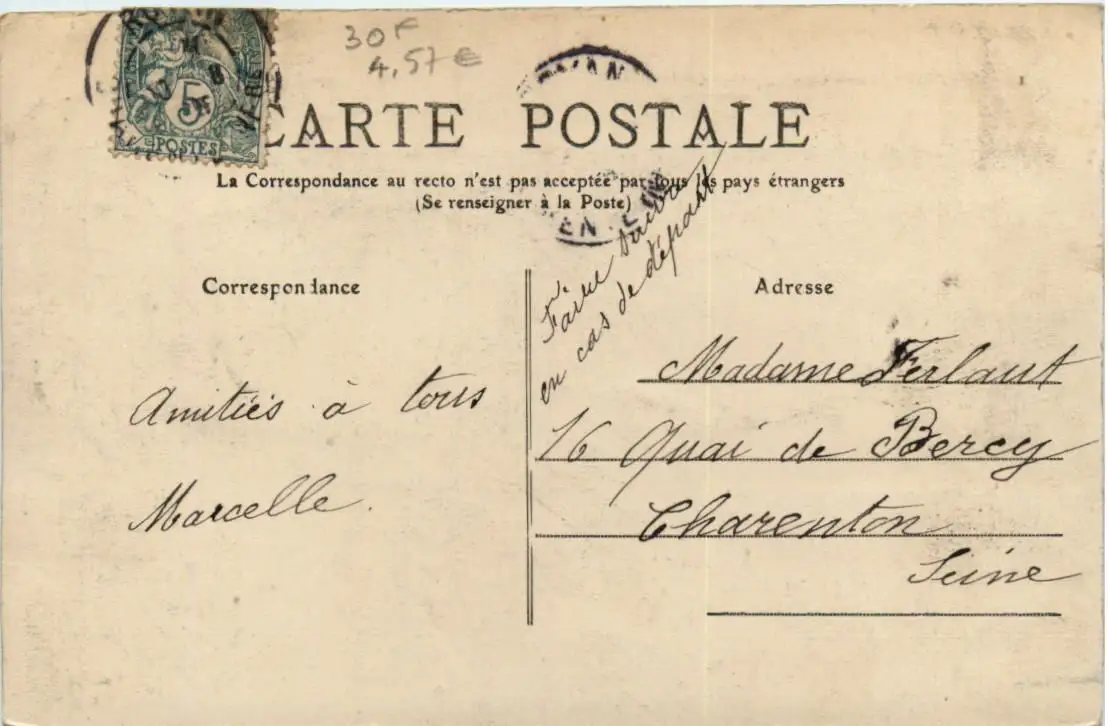 30F
4,57€
5
POSTES
CARTE POSTALE
La Correspondance au recto n'est pas acceptée par tous les pays étrangers
(Se renseigner à la Poste)
Correspondance
Adresse
Faire suivre
en cas de dépant
Amitiés à tous
Marcelle.
Madame Ferlaut
16 Quai de Bercy
Charenton
Seine